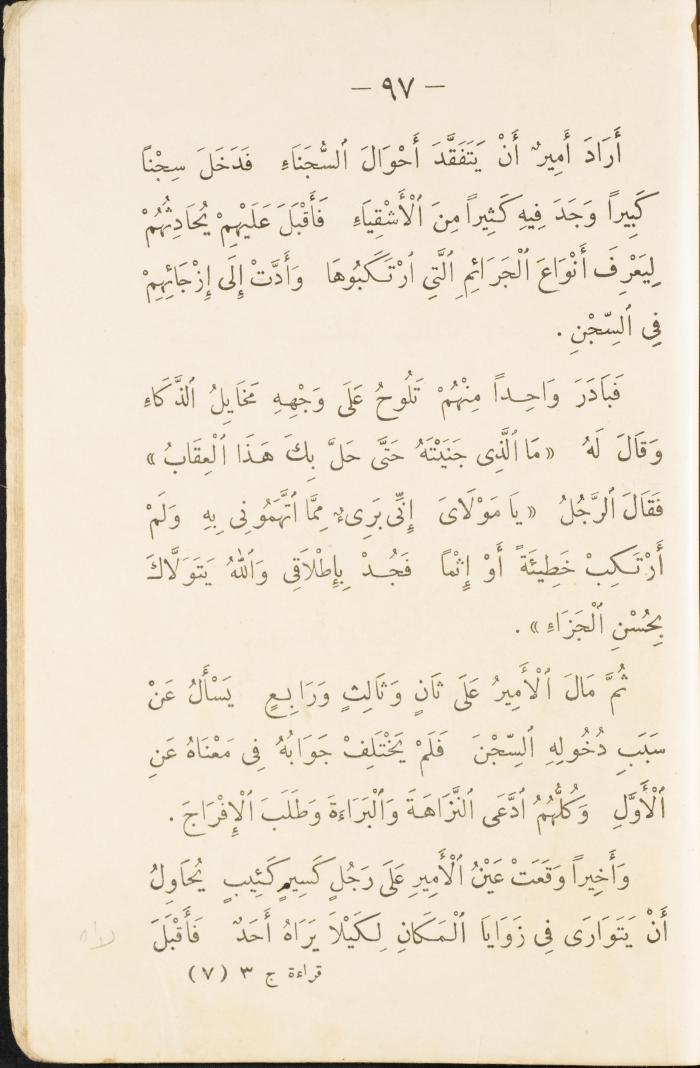 — ٩٧ —
أَرَادَ أَمِيرٌ أَنْ يَتَفَقَّدَ أَحْوَالَ ٱلسُّجَنَاءِ فَدَخَلَ سِجْنًا
كَبِيرًا وَجَدَ فِيهِ كَثِيرًا مِنَ ٱلْأَشْقِيَاءِ فَأَقْبَلَ عَلَيْهِمْ يُحَادِثُهُمْ
لِيَعْرِفَ أَنْوَاعَ ٱلْجَرَائِمِ ٱلَّتِي ٱرْتَكَبُوهَا وَأَدَّتْ إِلَى إِزْجَائِهِمْ
فِي ٱلسِّجْنِ .
فَبَادَرَ وَاحِدًا مِنْهُمْ تَلُوحُ عَلَى وَجْهِهِ مَخَايِلُ ٱلذَّكَاءِ
وَقَالَ لَهُ « مَا ٱلَّذِى جَنَيْتَهُ حَتَّى حَلَّ بِكَ هَذَا ٱلْعِقَابُ »
فَقَالَ ٱلرَّجُلُ « يَا مَوْلَاىَ إِنِّى بَرِىءٌ مِمَّا ٱتَّهَمُونِى بِهِ وَلَمْ
أَرْتَكِبْ خَطِيئَةً أَوْ إِثْمًا فَجُدْ بِإِطْلَاقِى وَٱللهُ يَتَوَلَّاكَ
بِحُسْنِ ٱلْجَزَاءِ » .
ثُمَّ مَالَ ٱلْأَمِيرُ عَلَى ثَانٍ وَثَالِثٍ وَرَابِعٍ يَسْأَلُ عَنْ
سَبَبِ دُخُولِهِ ٱلسِّجْنَ فَلَمْ يَخْتَلِفْ جَوَابُهُ فِى مَعْنَاهُ عَنِ
ٱلْأَوَّلِ وَكُلُّهُمُ ٱدَّعَى ٱلنَّزَاهَةَ وَٱلْبَرَاءَةَ وَطَلَبَ ٱلْإِفْرَاجَ .
وَأَخِيرًا وَقَعَتْ عَيْنُ ٱلْأَمِيرِ عَلَى رَجُلٍ كَسِيرٍ كَئِيبٍ يُحَاوِلُ
أَنْ يَتَوَارَى فِى زَوَايَا ٱلْمَكَانِ لِكَيْلَا يَرَاهُ أَحَدٌ فَأَقْبَلَ
قراءة ج ٣ (٧)